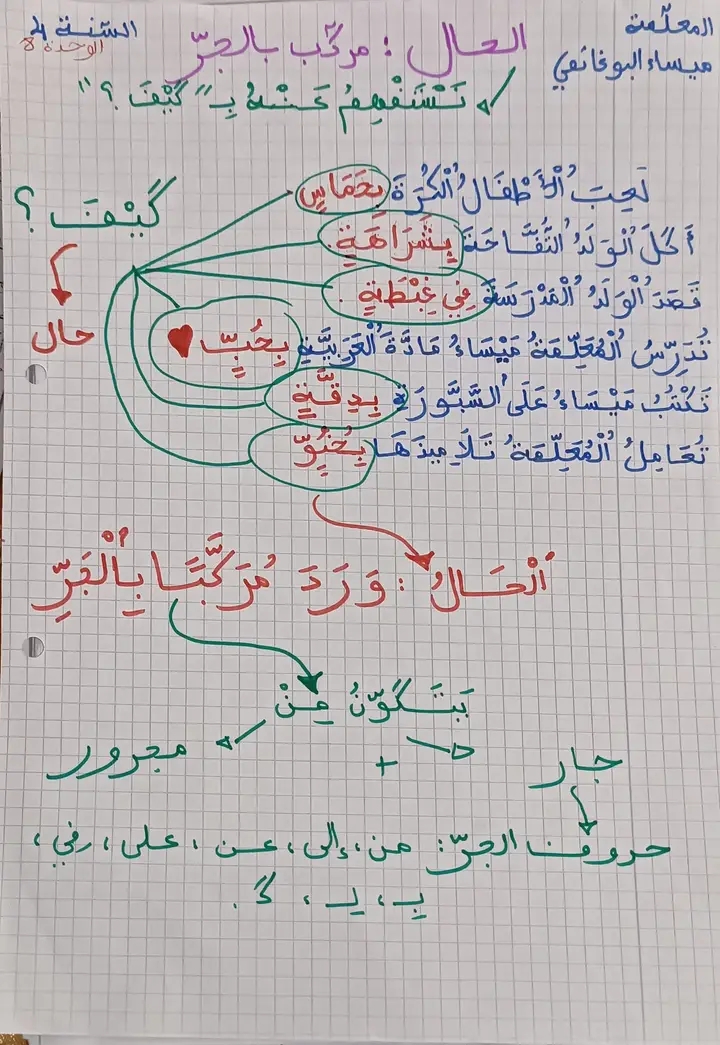 المعلّمة
ميساء البوغانمي
الحال : مركّب بالجرّ
السّنة 4
الوحدة 8
نَسْتَفْهِمُ عَنْهُ بِـ "كَيْفَ ؟"
لَعِبَ الْأَطْفَالُ الْكُرَةَ بِحَمَاسٍ
أَكَلَ الْوَلَدُ التُّفَّاحَةَ بِشَرَاهَةٍ.
قَصَدَ الْوَلَدُ الْمَدْرَسَةَ فِي غِبْطَةٍ.
تُدَرِّسُ الْمُعَلِّمَةُ مَيْسَاءُ مَادَّةَ الْعَرَبِيَّةِ بِحُبٍّ ♥
تَكْتُبُ مَيْسَاءُ عَلَى السَّبُّورَةِ بِدِقَّةٍ
تُعَامِلُ الْمُعَلِّمَةُ تَلَامِيذَهَا بِحُنُوٍّ
كَيْفَ ؟
حال
الْحَالُ : وَرَدَ مُرَكَّبًا بِالْجَرِّ
يَتَكَوَّنُ مِنْ
جار + مجرور
حروف الجرّ: من، إلى، عن، على، في،
بِـ، لِـ، كَـ.